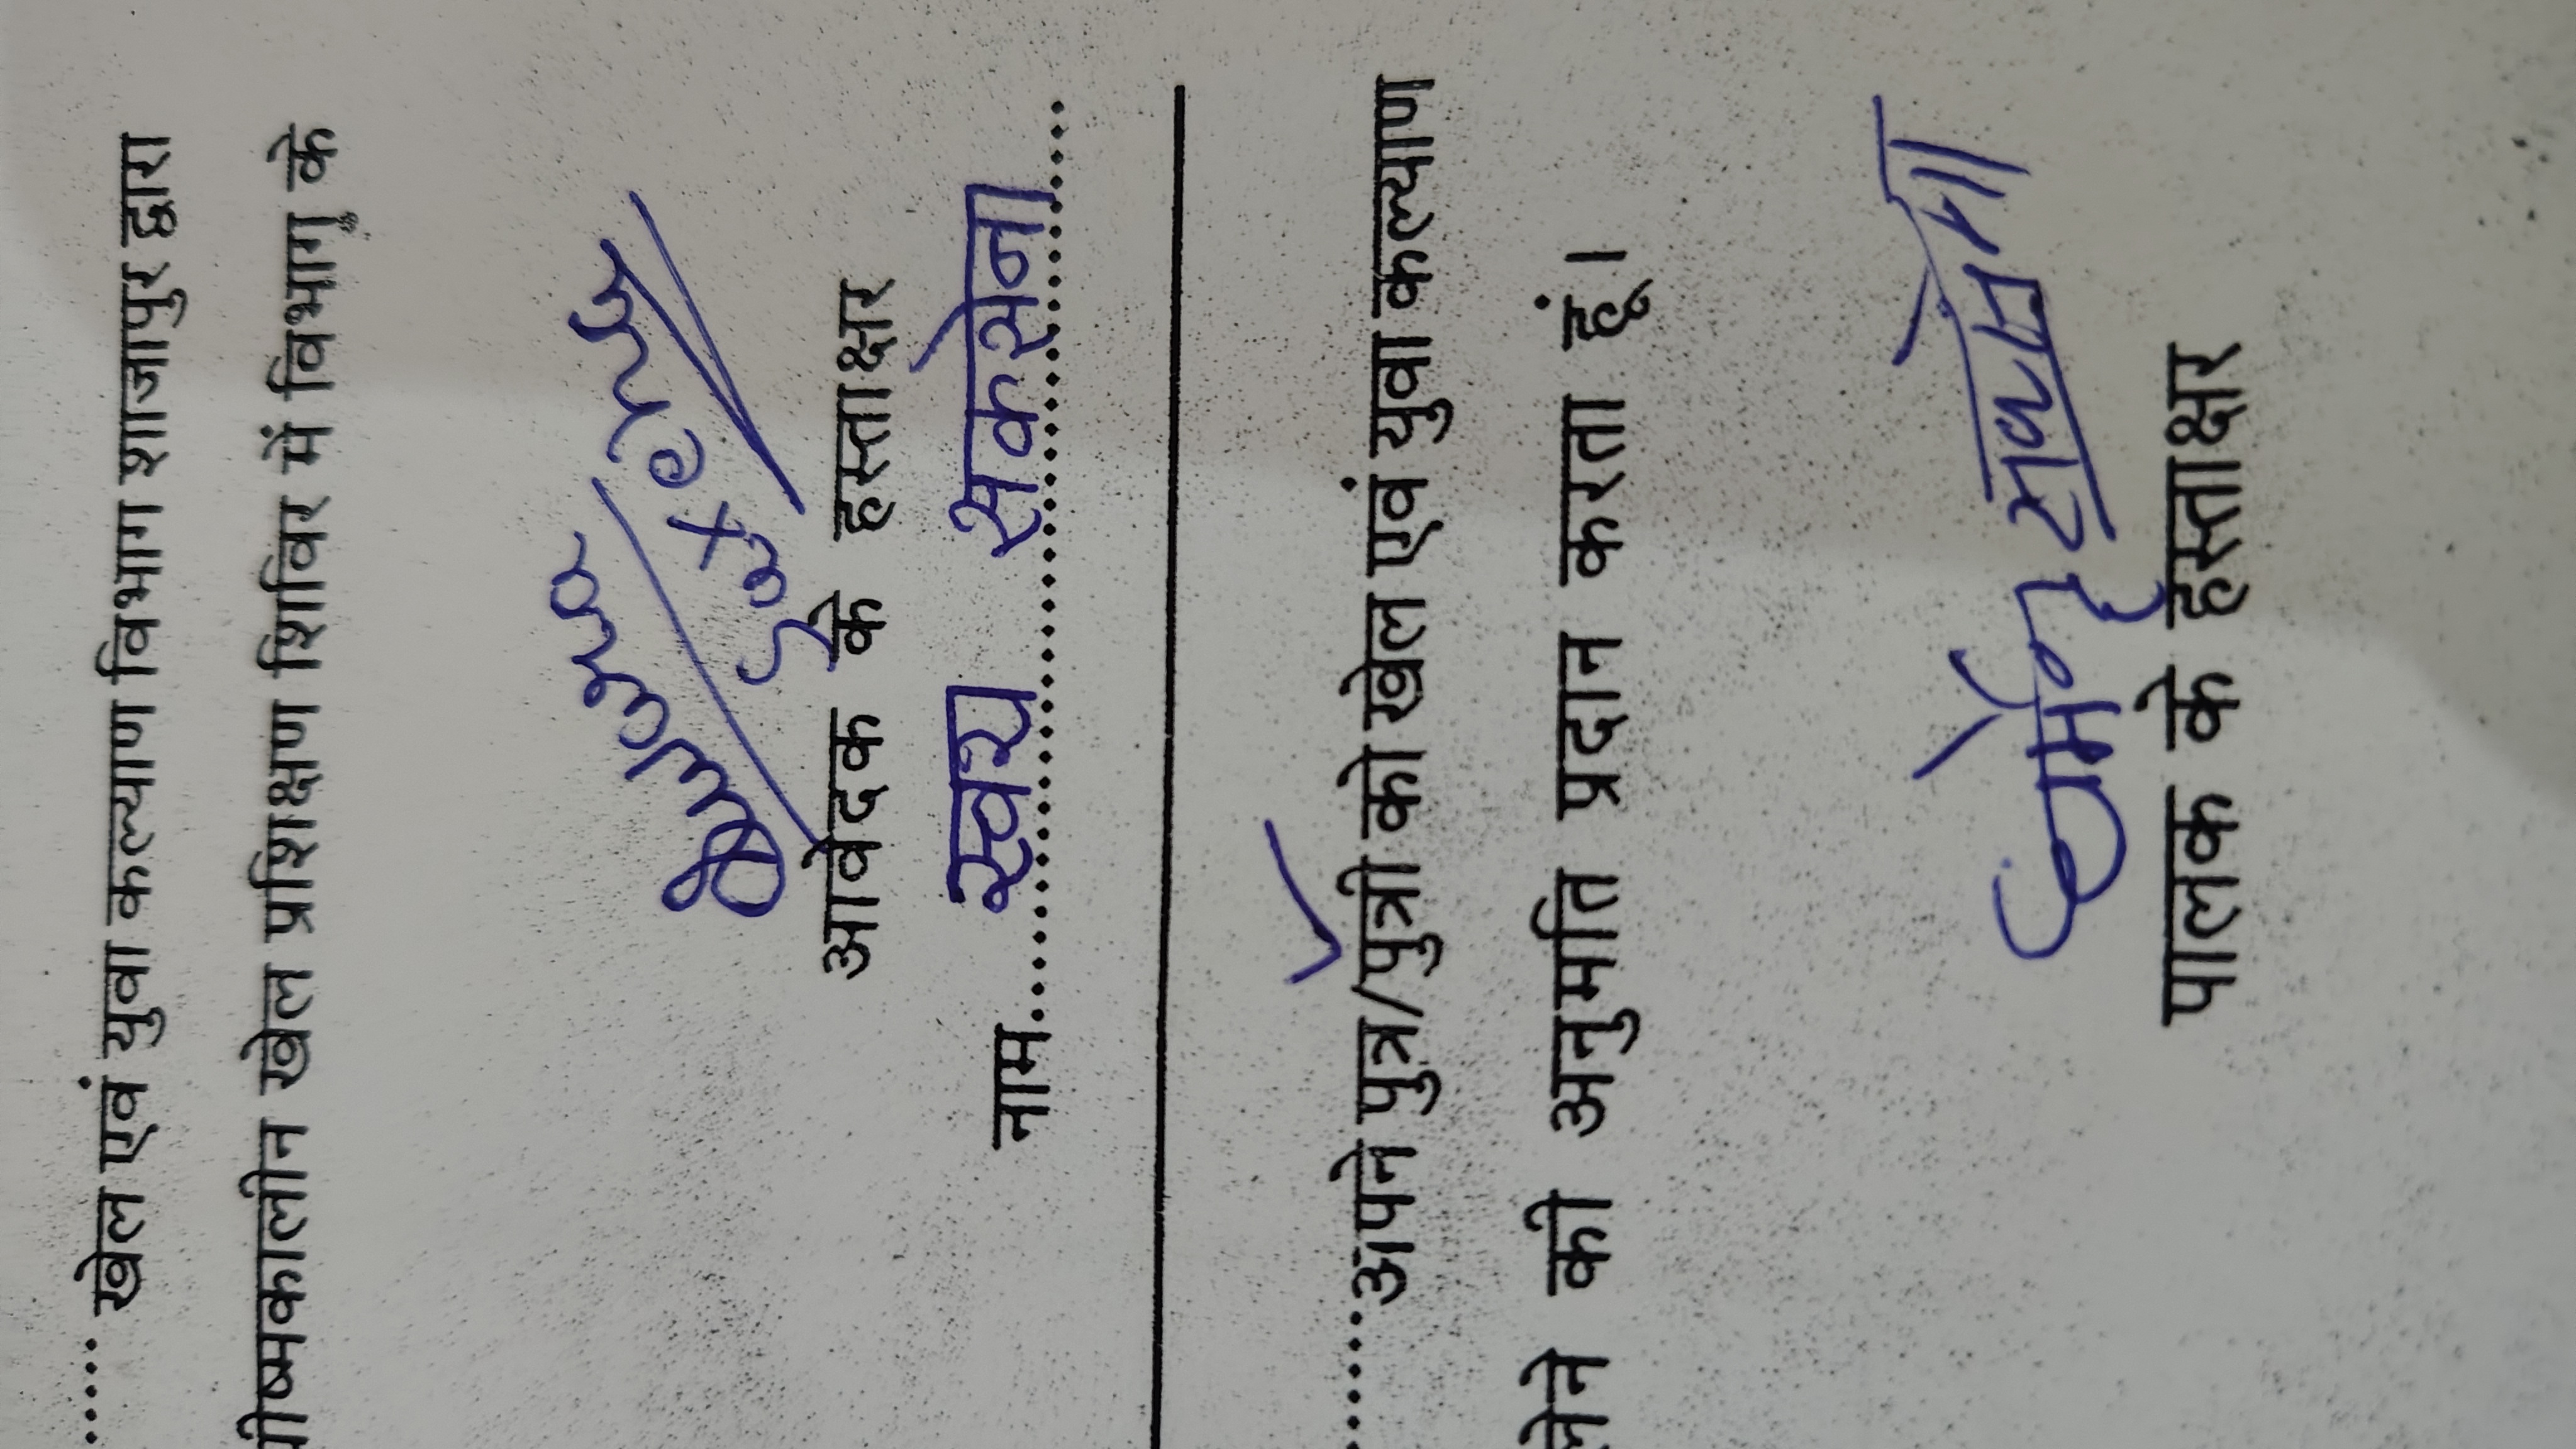 ...... खेल एवं युवा कल्याण विभाग शाजापुर द्वारा
ग्रीष्मकालीन खेल प्रशिक्षण शिविर में विभाग के
Saxena
आवेदक के हस्ताक्षर
नाम.......स्वयं सकसेना.......
.......अपने पुत्र/पुत्री को खेल एवं युवा कल्याण
की अनुमति प्रदान करता हूं।
सक्सेना
पालक के हस्ताक्षर